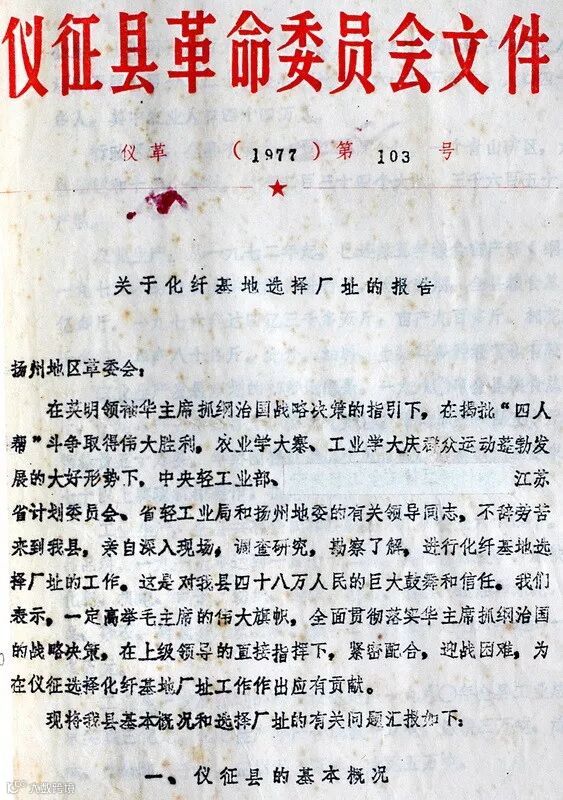 仪征县革命委员会文件
仪革 （1977）第 103 号
关于化纤基地选择厂址的报告
扬州地区革委会：
在英明领袖华主席抓纲治国战略决策的指引下，在揭批“四人
帮”斗争取得伟大胜利，农业学大寨、工业学大庆群众运动蓬勃发
展的大好形势下，中央轻工业部、 江苏
省计划委员会、省轻工业局和扬州地委的有关领导同志，不辞劳苦
来到我县，亲自深入现场，调查研究，勘察了解，进行化纤基地选
择厂址的工作。这是对我县四十八万人民的巨大鼓舞和信任。我们
表示，一定高举毛主席的伟大旗帜，全面贯彻落实华主席抓纲治国
的战略决策，在上级领导的直接指挥下，紧密配合，迎战困难，为
在仪征选择化纤基地厂址工作作出应有贡献。
现将我县基本概况和选择厂址的有关问题汇报如下：
一、仪征县的基本概况